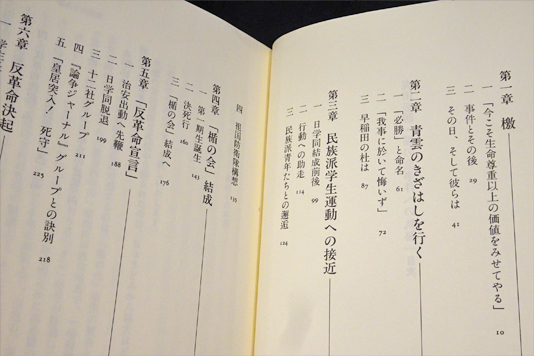 第一章 檄
一 「今こそ生命尊重以上の価値をみせてやる」 10
二 事件とその後 29
三 その日、そして彼らは 41
第二章 青雲のきざはしを行く
一 「必勝」と命名 61
二 「我事に於いて悔いず」 72
三 早稲田の杜は 87
第三章 民族派学生運動への接近
一 日学同結成前後 99
二 行動への助走 114
三 民族派青年たちとの邂逅 124
四 祖国防衛隊構想 135
第四章 「楯の会」結成
一 第一期生誕生 143
二 決死行 161
三 「楯の会」結成へ 176
第五章 「反革命宣言」
一 治安出動へ先鞭 188
二 日学同脱退 199
三 十二社グループ 211
四 『論争ジャーナル』グループとの訣別 218
五 「皇居突入!死守」 225
第六章 反革命決起